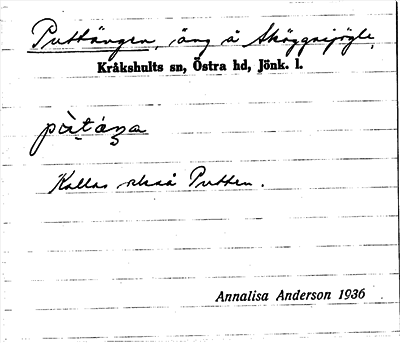 Puttängen, äng å Sköggsijögle,
Kråkshults sn, Östra hd, Jönk. l.
Kallas också Putten.
Annalisa Anderson 1936